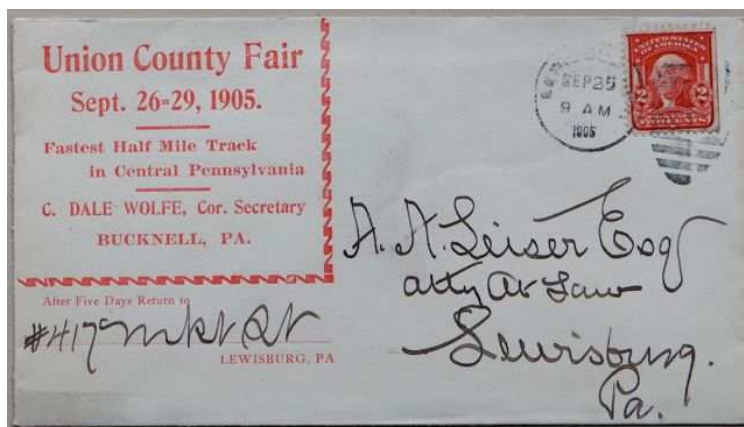 Union County Fair
Sept. 26-29, 1905.
Fastest Half Mile Track
in Central Pennsylvania
C. DALE WOLFE, Cor. Secretary
BUCKNELL, PA.
After Five Days Return to
#417 Mkt St
LEWISBURG, PA
SEP 25
9 AM
1905
UNITED STATES
OF AMERICA
2 2
TWO CENTS
A. A. Leiser Esq
atty at Law
Lewisburg.
Pa.